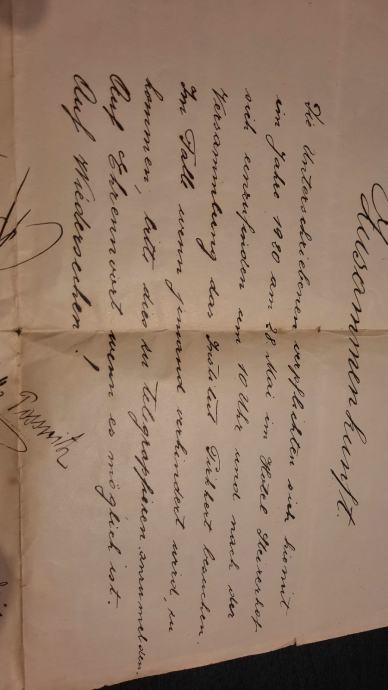 Zusammenkunft.
Die Unterschriebenen verpflichten sich hiermit
im Jahre 1920 am 28 Mai im Hotel
sich einzufinden um 10 Uhr und nach der
Versammlung das Institut besuchen.
Im Falle wenn jemand verhindert wird, zu
kommen, bitte dies zu telegraphieren anzumelden.
Auf Ehrenwort wenn es möglich ist.
Auf Wiedersehen!